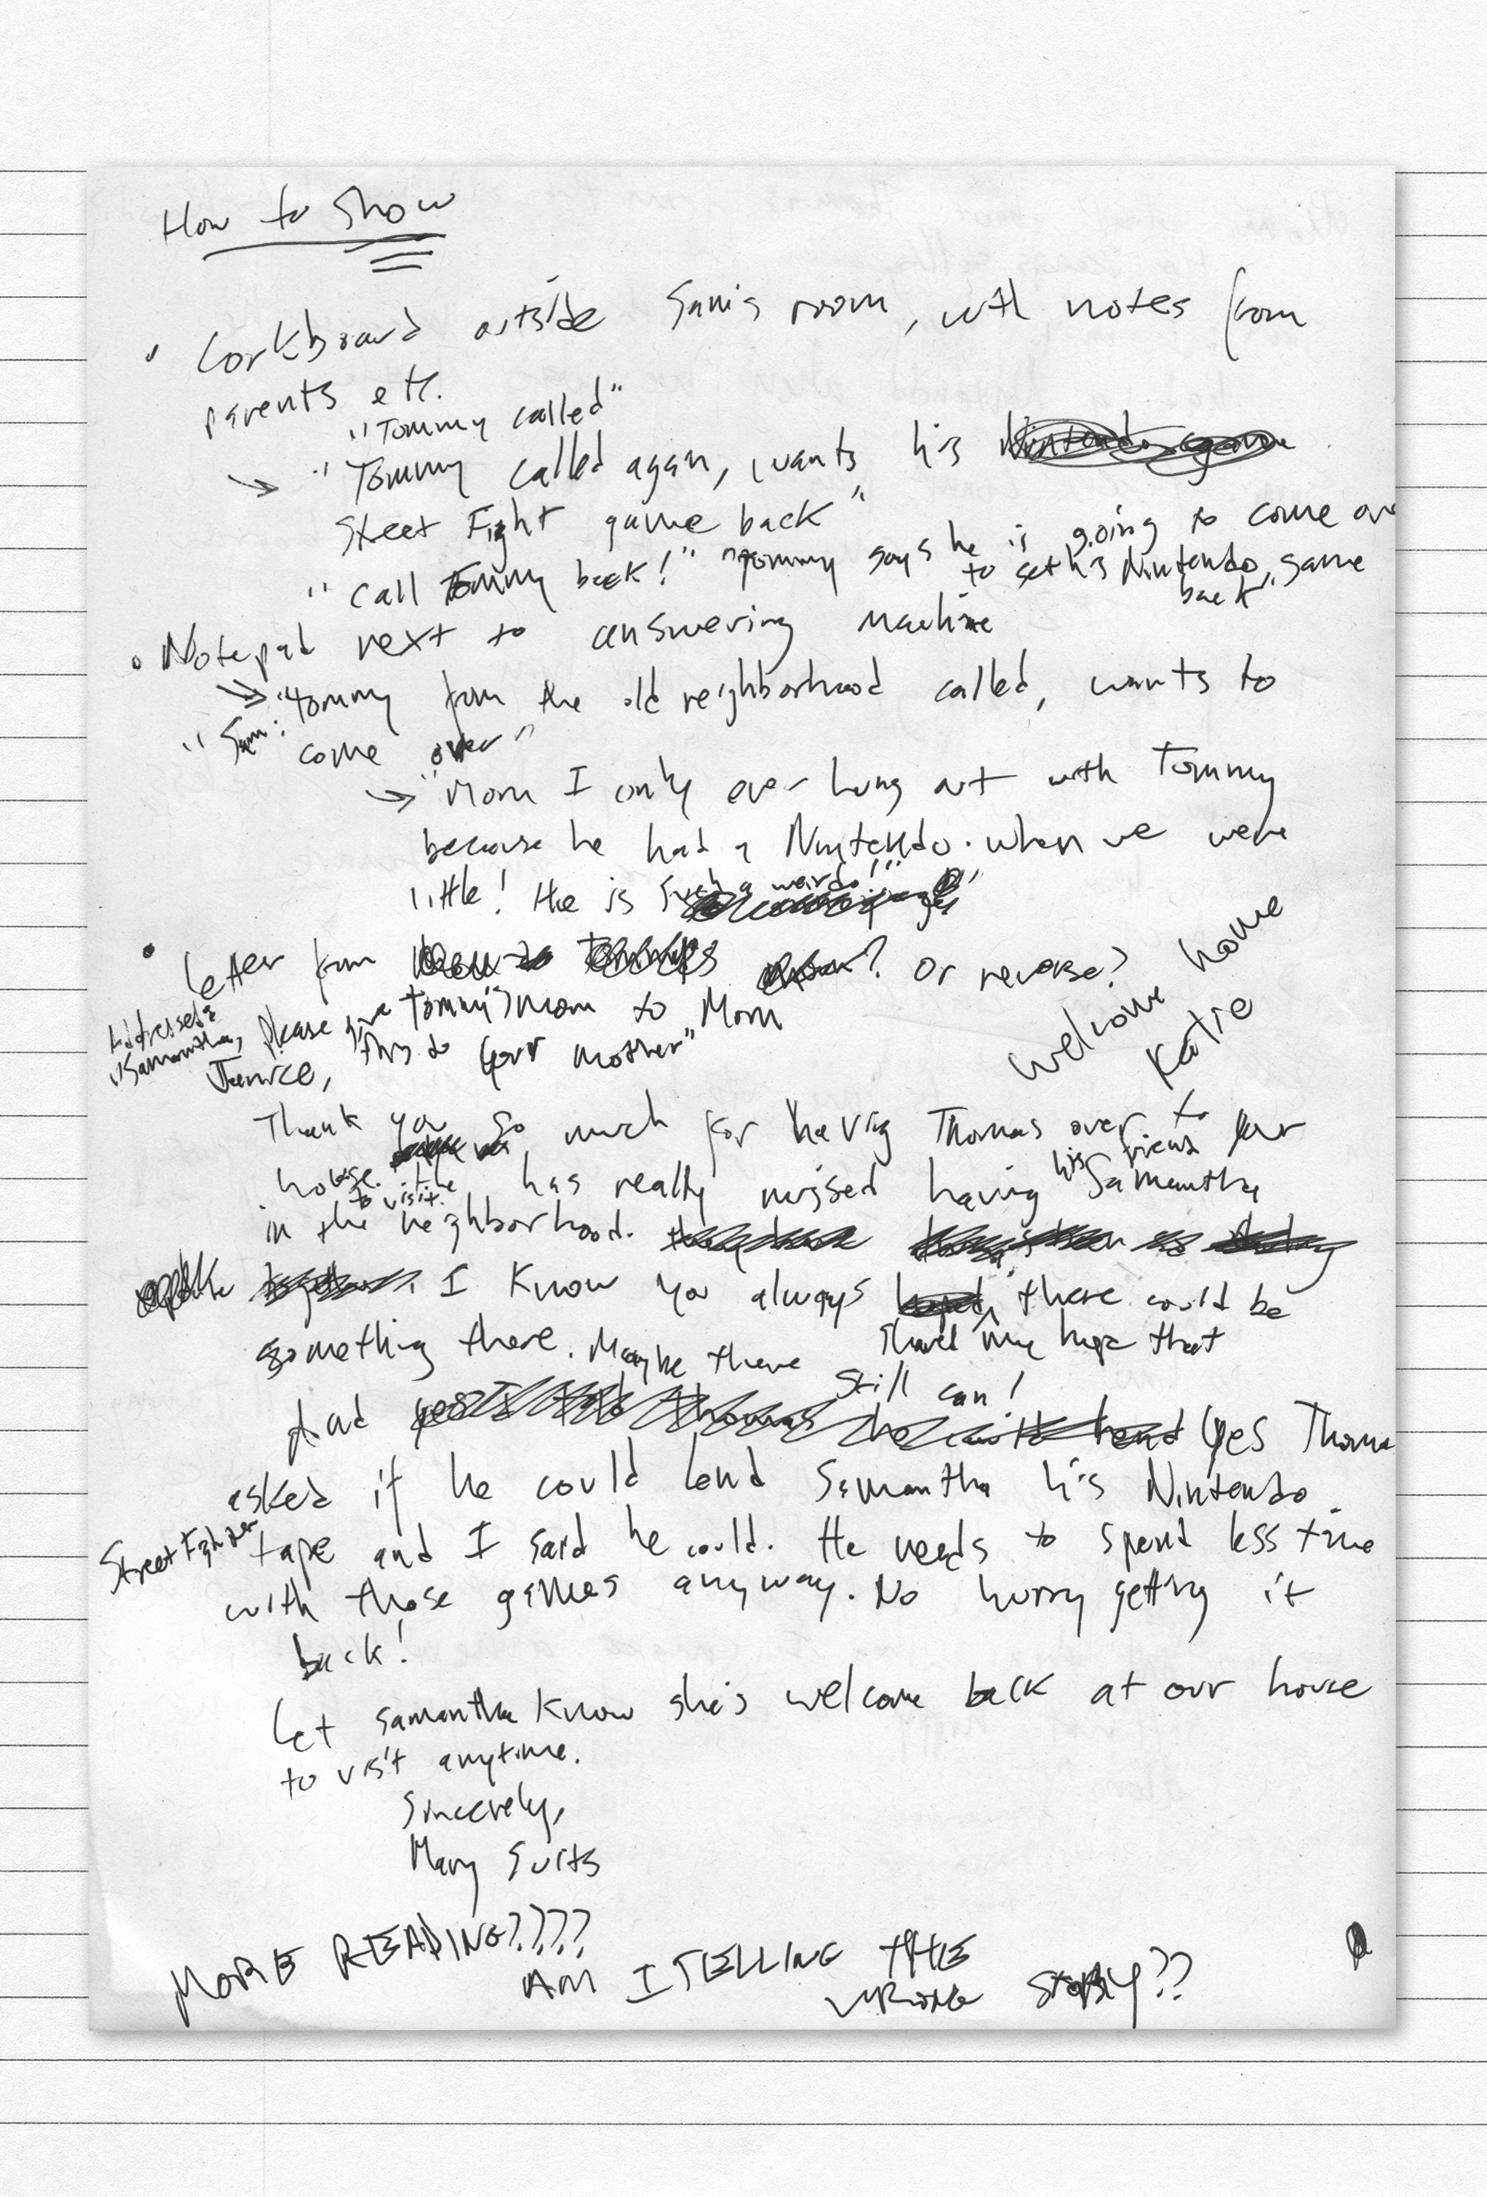 How to Show
• Corkboard outside Sam's room, with notes from
parents etc.
"Tommy called"
→ "Tommy called again, wants his Nintendo game
Street Fight game back"
"Call Tommy back!" "Tommy says he is going to come over
to get his Nintendo game
back"
• Notepad next to answering machine
→ "Tommy from the old neighborhood called, wants to
"Sam:
come over"
→ "Mom I only ever hung out with Tommy
because he had a Nintendo. when we were
little! He is such a weirdo!!"
• Letter from ? or reverse?
Tommy's mom to Mom
welcome home
Katie
Addressed:
"Samantha, please give
this to your mother"
Janice,
Thank you so much for having Thomas over to your
house. He has really missed having his friend Samantha
to visit.
in the neighborhood.
I know you always there could be
shared my hope that
something there. Maybe there still can!
And yes Thomas
asked if he could lend Samantha his Nintendo
Street Fighter
tape and I said he could. He needs to spend less time
with those games anyway. No hurry getting it
back!
Let Samantha know she's welcome back at our house
to visit anytime.
Sincerely,
Mary Suits
MORE READING????
AM I TELLING THE
WRONG STORY??